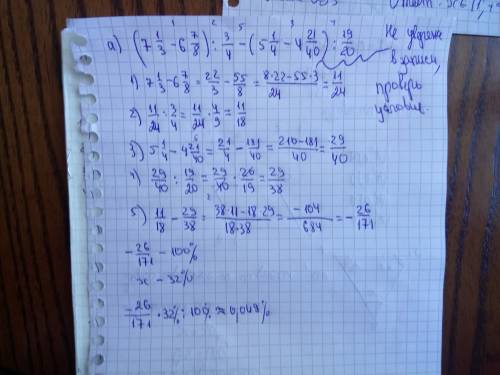 ответ: 3c6/1,75
1 2 5 3 4
а) (7 1/3 - 6 7/8) : 3/4 - (5 1/4 - 4 21/40) : 19/20
Не уверена
в записи,
проверь
условие.
1) 7 1/3 - 6 7/8 = 22/3 - 55/8 = (8·22-55·3)/24 = 11/24
2) 11/24 : 3/4 = 11/24 · 4/3 = 11/18
3) 5 1/4 - 4 21/40 = 21/4 - 181/40 = (210-181)/40 = 29/40
4) 29/40 : 19/20 = 29/40 · 20/19 = 29/38
5) 11/18 - 29/38 = (38·11-18·29)/(18·38) = -104/684 = -26/171
-26/171 - 100%
x - 32%
-26/171 · 32% : 100% ≈ 0,049%